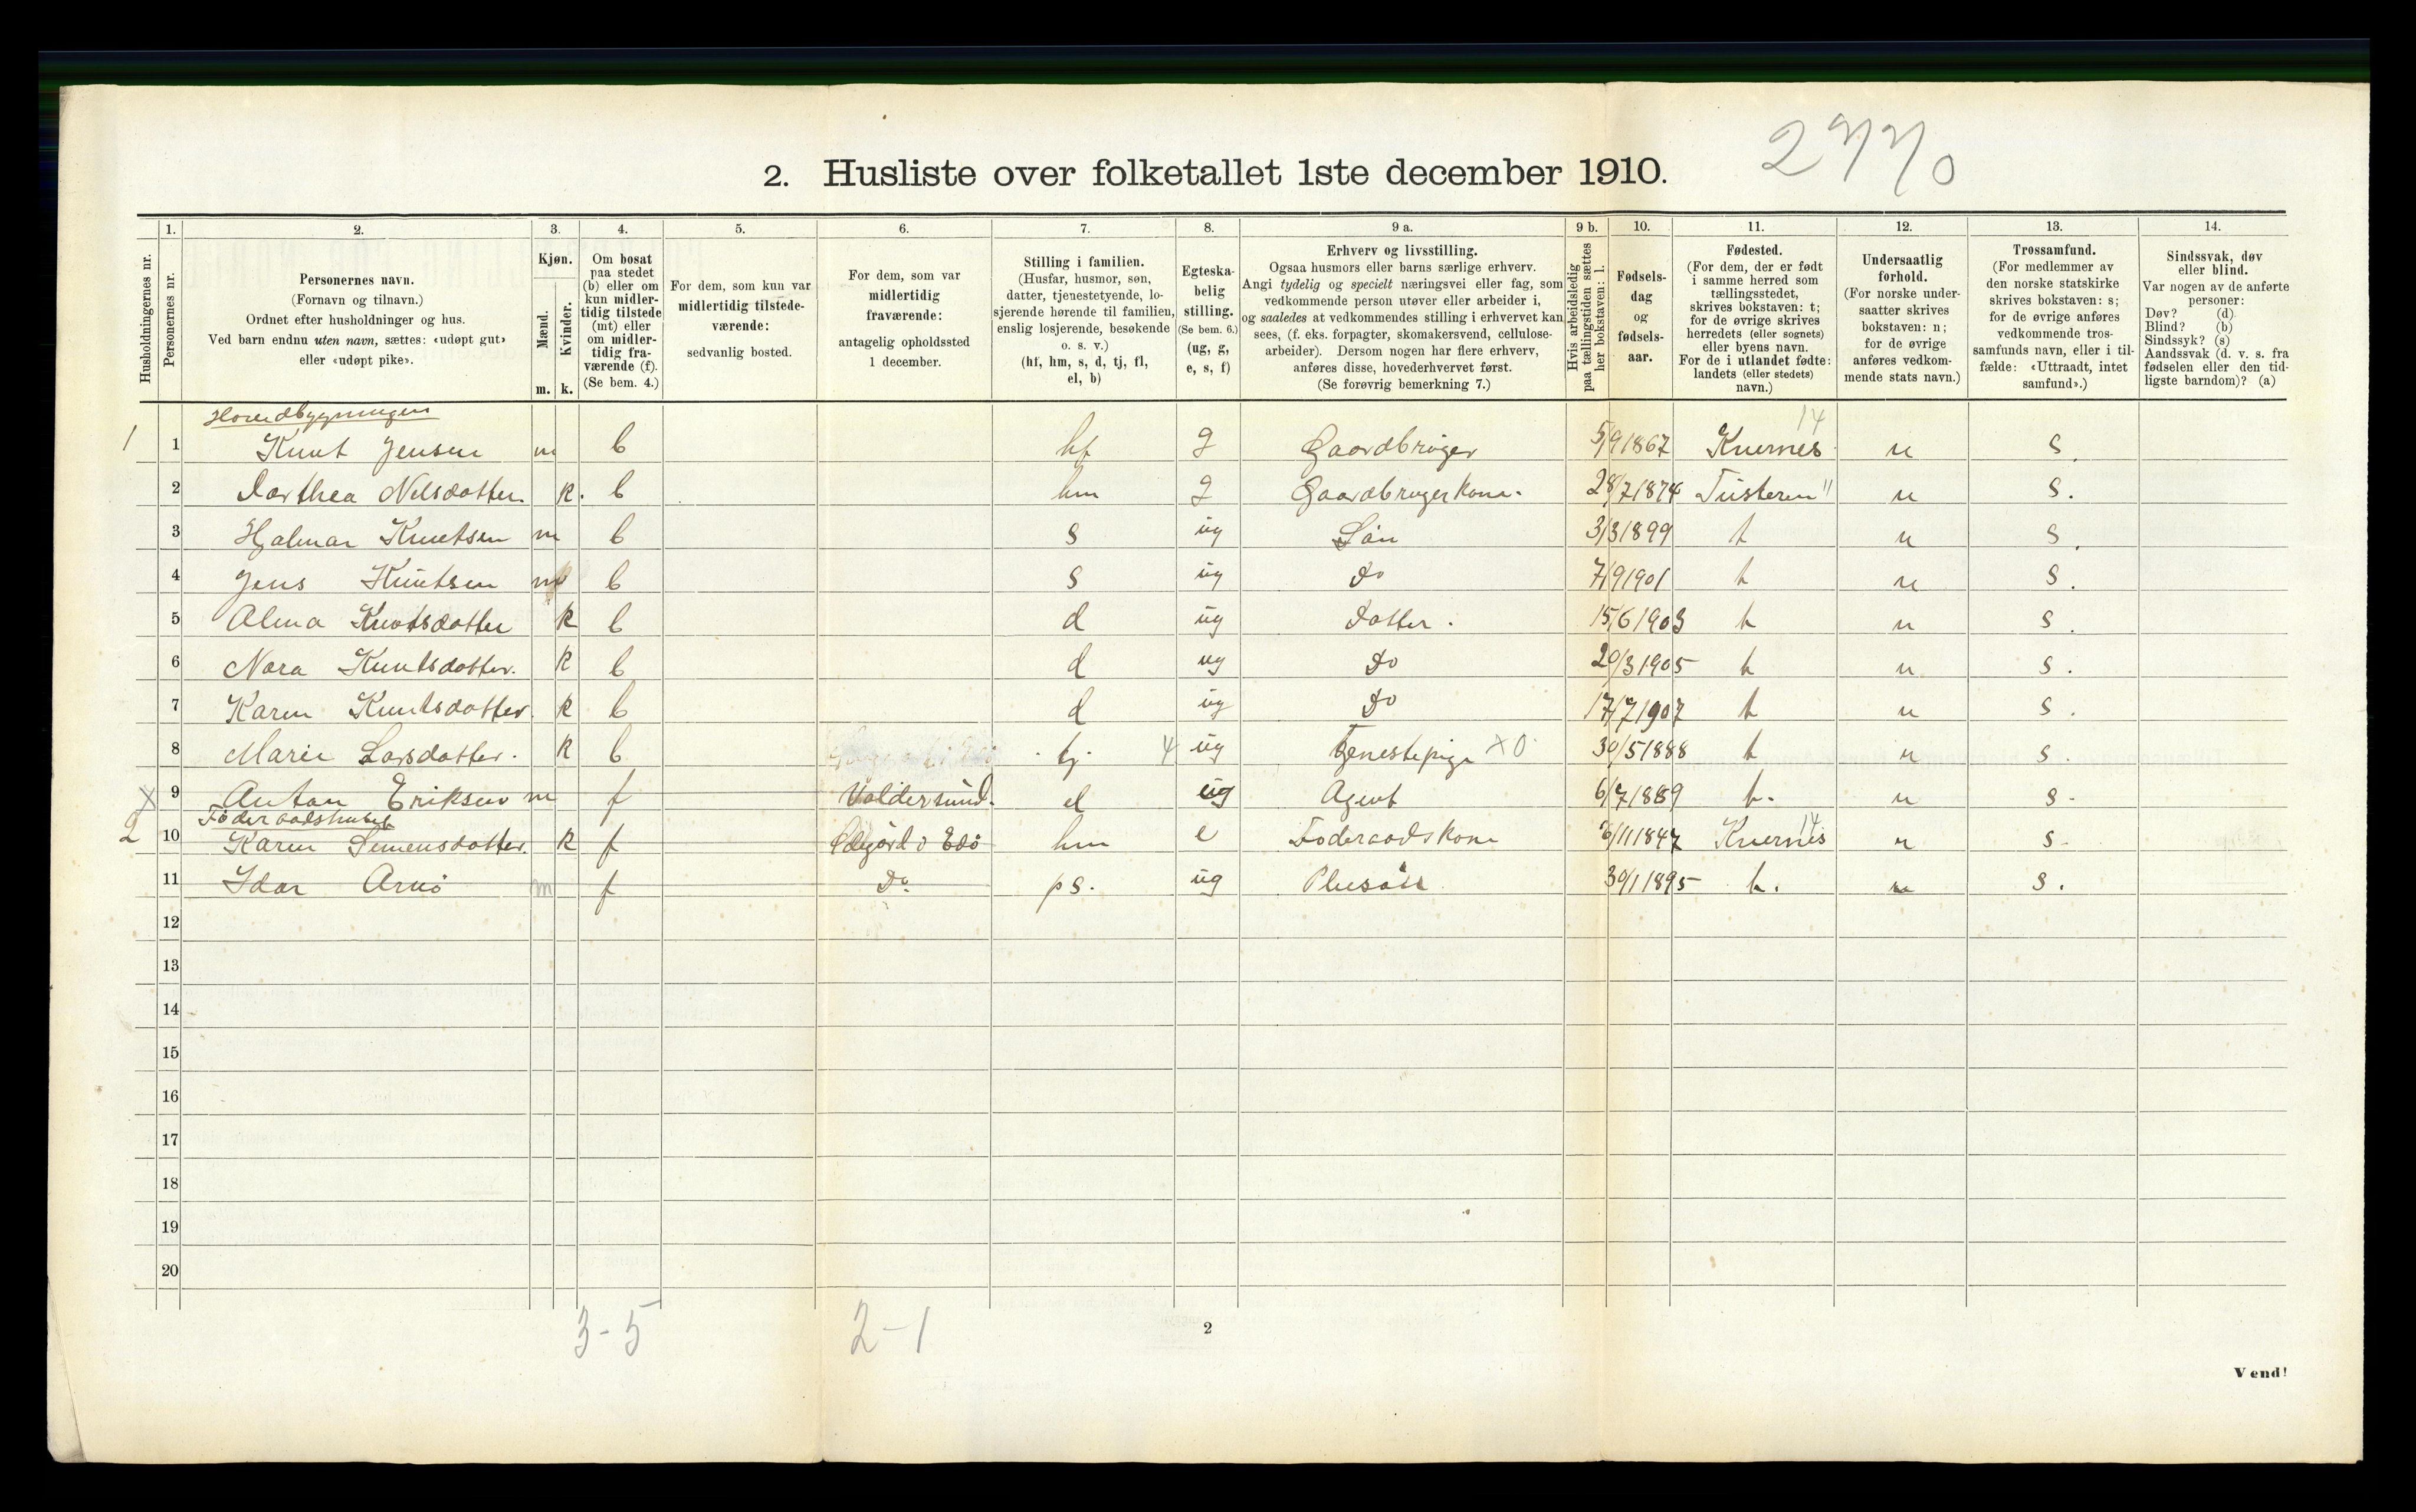 2770
2. Husliste over folketallet 1ste december 1910.
Husholdningernes nr.
1.
Personernes nr.
2.
Personernes navn.
(Fornavn og tilnavn.)
Ordnet efter husholdninger og hus.
Ved barn endnu uten navn, sættes: «udøpt gut»
eller «udøpt pike».
3.
Kjøn.
Mænd.
m.
Kvinder.
k.
4.
Om bosat
paa stedet
(b) eller om
kun midler-
tidig tilstede
(mt) eller
om midler-
tidig fra-
værende (f).
(Se bem. 4.)
5.
For dem, som kun var
midlertidig tilstede-
værende:
sedvanlig bosted.
6.
For dem, som var
midlertidig
fraværende:
antagelig opholdssted
1 december.
7.
Stilling i familien.
(Husfar, husmor, søn,
datter, tjenestetyende, lo-
sjerende hørende til familien,
enslig losjerende, besøkende
o. s. v.)
(hf, hm, s, d, tj, fl,
el, b)
8.
Egteska-
belig
stilling.
(Se bem. 6.)
(ug, g,
e, s, f)
9 a.
Erhverv og livsstilling.
Ogsaa husmors eller barns særlige erhverv.
Angi tydelig og specielt næringsvei eller fag, som
vedkommende person utøver eller arbeider i,
og saaledes at vedkommendes stilling i erhvervet kan
sees, (f. eks. forpagter, skomakersvend, cellulose-
arbeider). Dersom nogen har flere erhverv,
anføres disse, hovederhvervet først.
(Se forøvrig bemerkning 7.)
9 b.
Hvis arbeidsledig
paa tællingstiden sættes
her bokstaven: l.
10.
Fødsels-
dag
og
fødsels-
aar.
11.
Fødested.
(For dem, der er født
i samme herred som
tællingsstedet,
skrives bokstaven: t;
for de øvrige skrives
herredets (eller sognets)
eller byens navn.
For de i utlandet fødte:
landets (eller stedets)
navn.)
12.
Undersaatlig
forhold.
(For norske under-
saatter skrives
bokstaven: n;
for de øvrige
anføres vedkom-
mende stats navn.)
13.
Trossamfund.
(For medlemmer av
den norske statskirke
skrives bokstaven: s;
for de øvrige anføres
vedkommende tros-
samfunds navn, eller i til-
fælde: «Uttraadt, intet
samfund».)
14.
Sindssvak, døv
eller blind.
Var nogen av de anførte
personer:
Døv? (d)
Blind? (b)
Sindssyk? (s)
Aandssvak (d. v. s. fra
fødselen eller den tid-
ligste barndom)? (a)
Hovedbygningen
1 1 Knut Jensen m b hf g Gaardbruger 5/9 1867 Kvernes 14 n s.
2 Dorthea Nilsdatter k. b hm g Gaardbrugerkone. 28/7 1874 Tusteren " n s.
3 Hjalmar Knutsen m b s ug Sön 3/3 1899 t n s.
4 Jens Knutsen m b s ug Do 7/9 1901 t n s.
5 Alma Knutsdatter k b d ug Datter. 15/6 1903 t n s.
6 Nora Knutsdatter. k b d ug Do 20/3 1905 t n s.
7 Karen Knutsdatter. k b d ug Do 17/7 1907 t n s.
8 Marie Larsdatter. k b tj 4 ug Tjenestepige x 0 30/5 1888 t n s.
x 9 Anton Eriksen m f Valdersund. el ug Agent 6/7 1889 t. n s.
Föderaadshuset
2 10 Karen Simensdatter. k f Ödegård Edö hm e Föderaadskone 6/11 1847 Kvernes 14 n s.
11 Idar Arnö m f Do ps. ug Pleisön 30/1 1895 t. n s.
12
13
14
15
16
17
18
19
20
3-5
2-1
2
Vend!